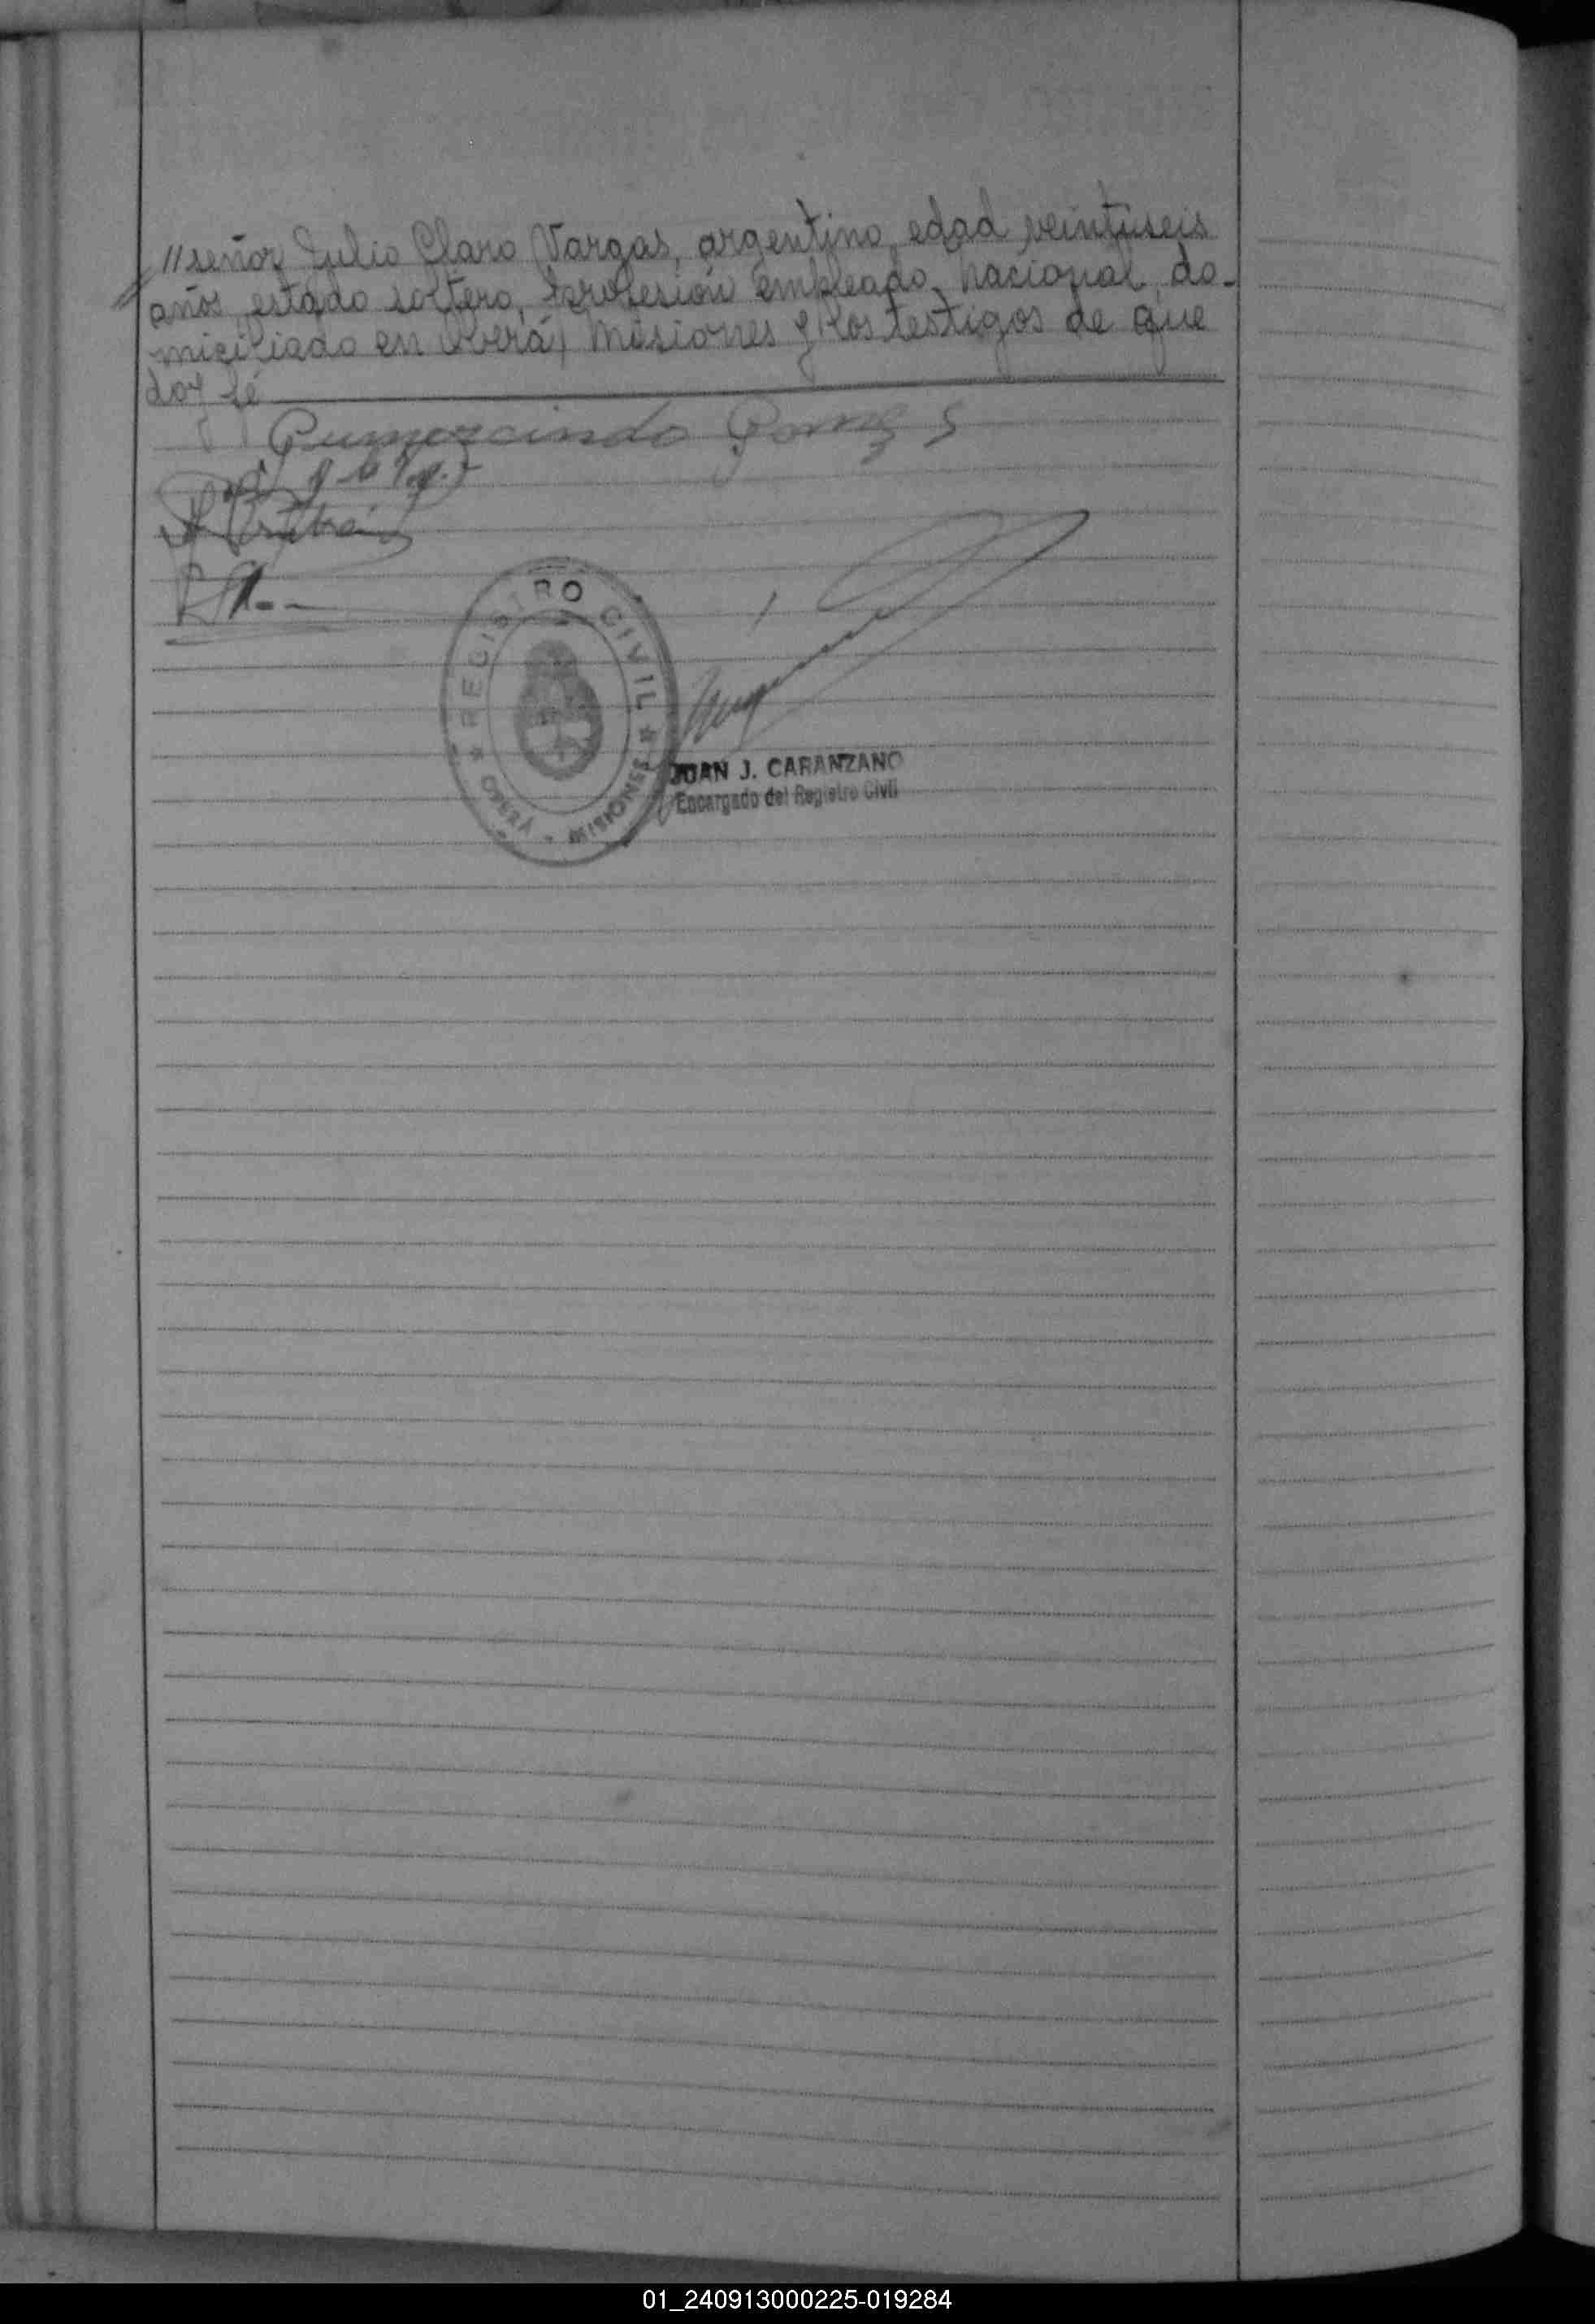 //señor Julio Claro Vargas, argentino, edad veintiseis
años, estado soltero, profesión empleado nacional, do-
miciliado en Oberá, Misiones y los testigos de que
doy fé
Gumercindo Gomez
REGISTRO CIVIL * MISIONES - OBERA *
JUAN J. CARANZANO
Encargado del Registro Civil
01_240913000225-019284